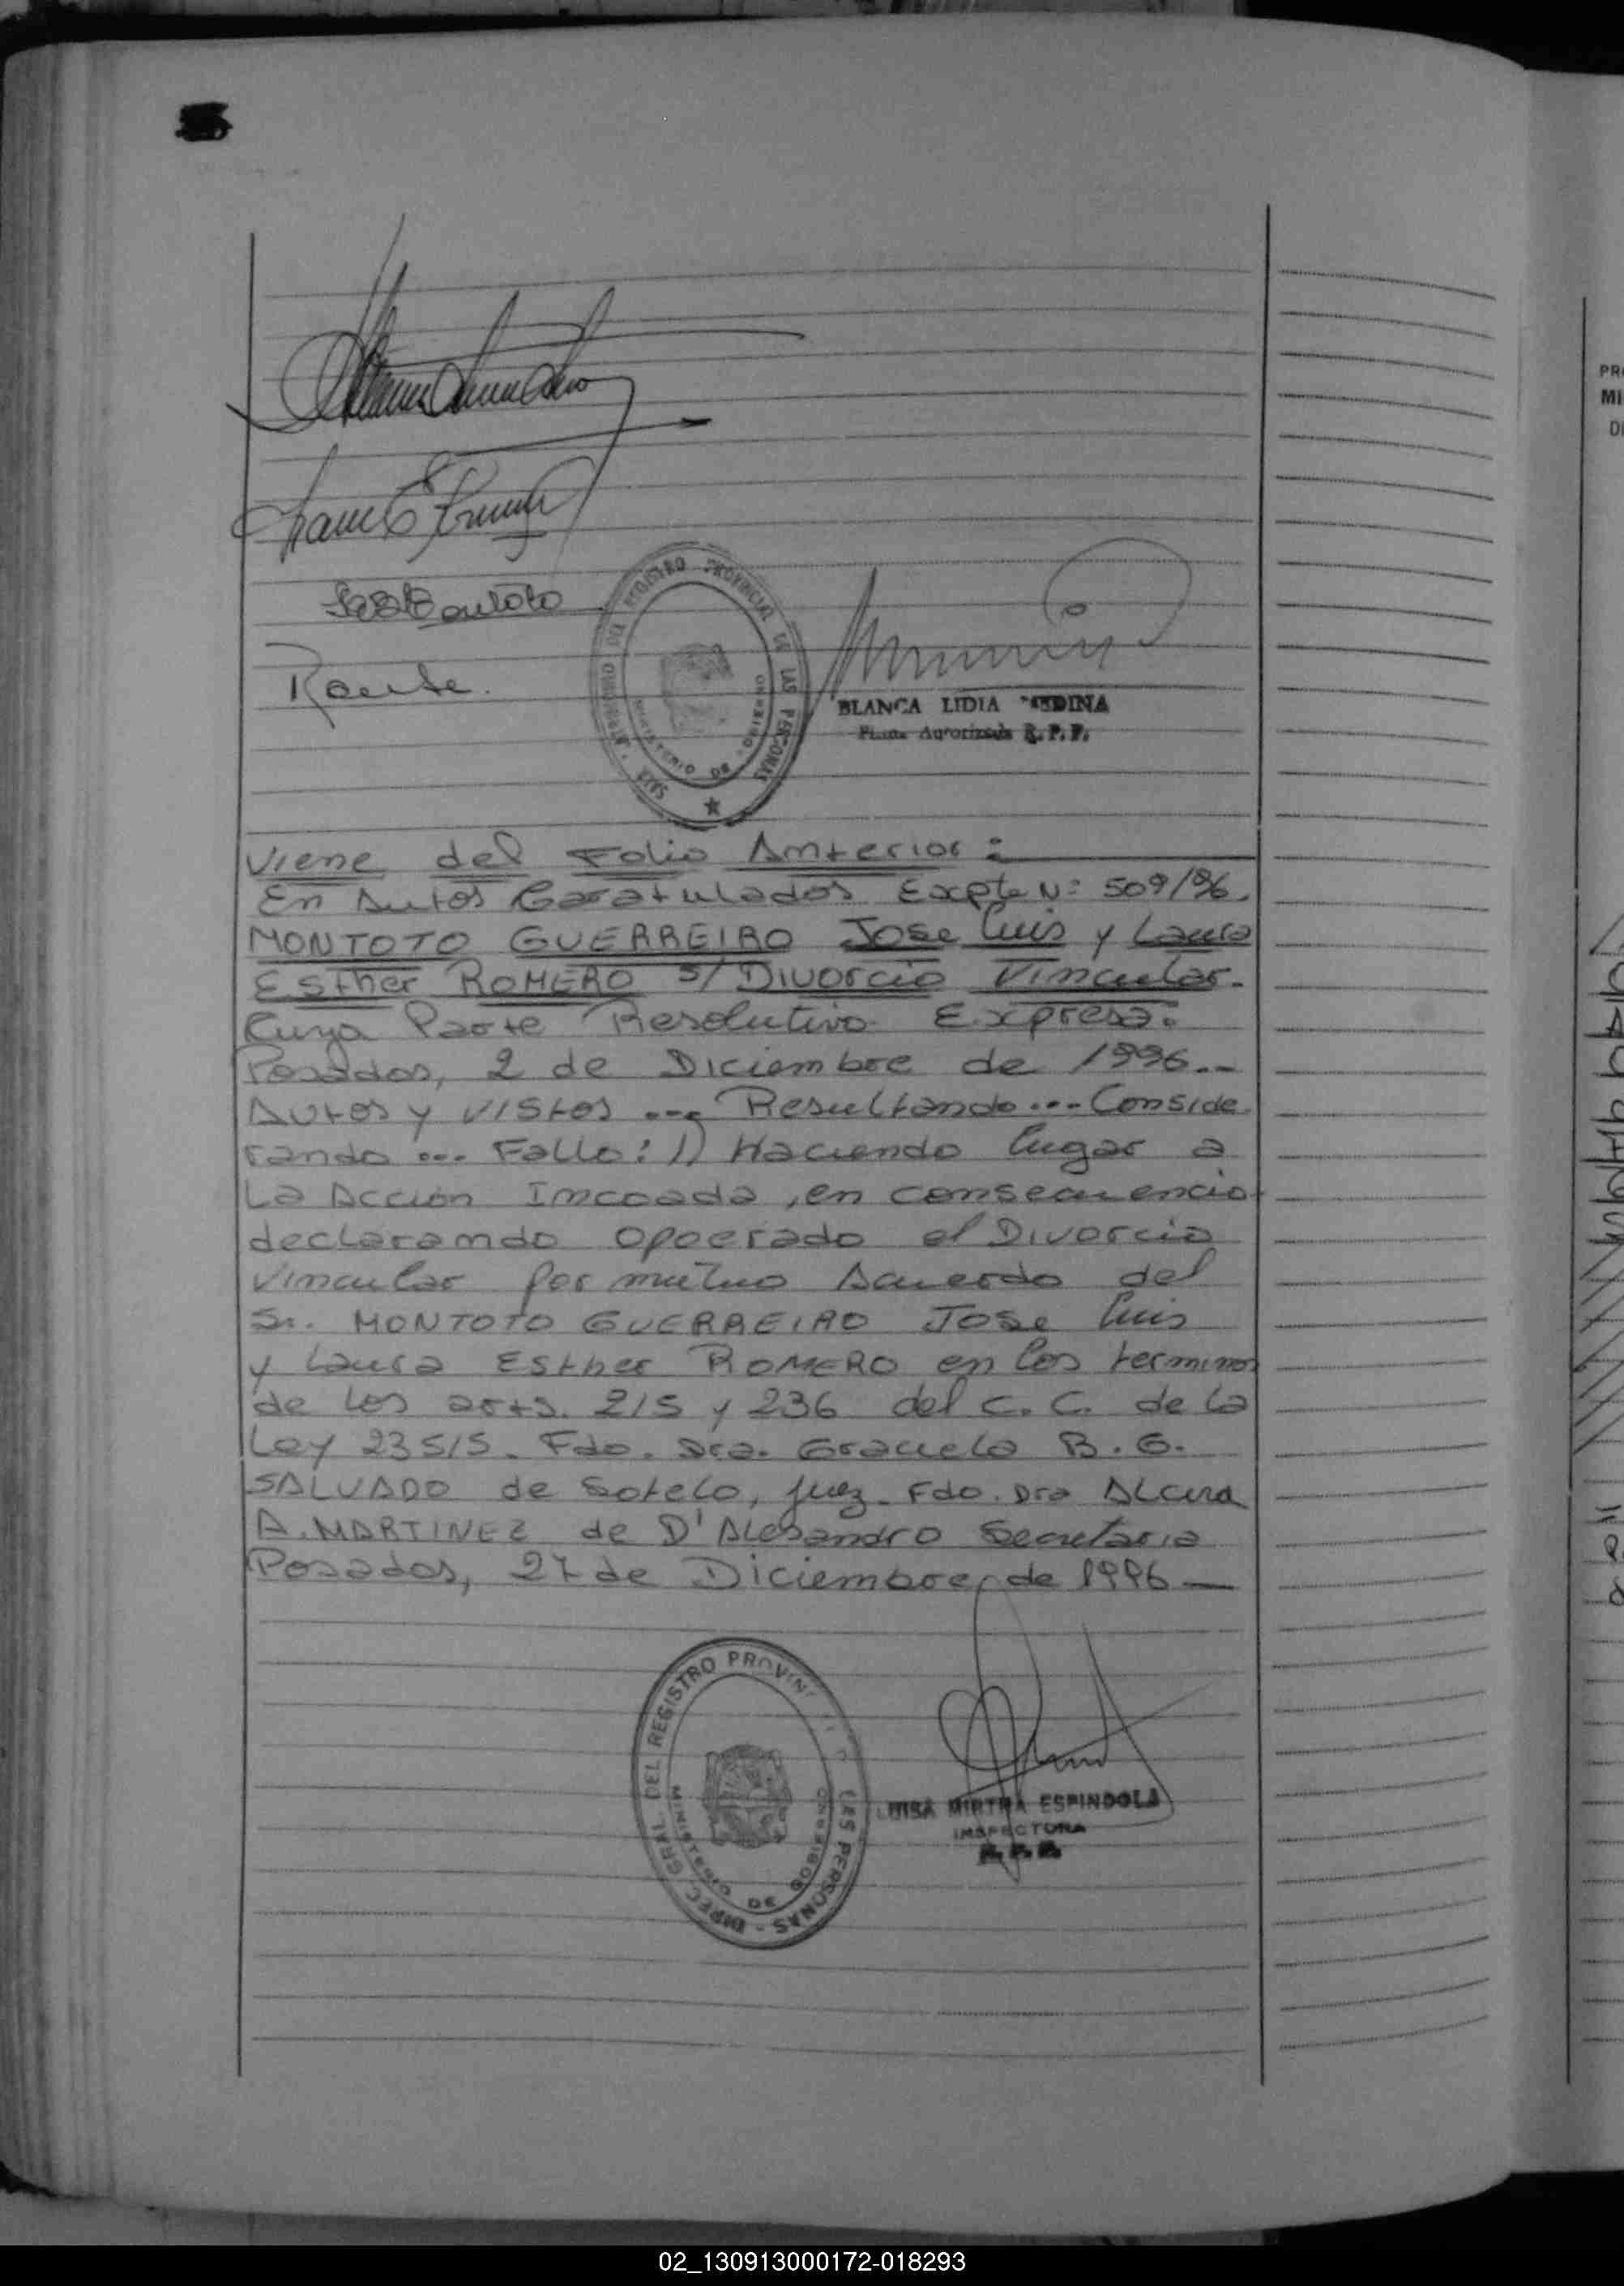 BLANCA LIDIA MEDINA
Firma Autorizada R.P.P.
REGISTRO PROVINCIAL DE LAS PERSONAS
MINISTERIO DE GOBIERNO
Viene del Folio Anterior:
En Autos Caratulados Expte Nº 509/96.
MONTOTO GUERREIRO Jose Luis y Laura
Esther ROMERO s/ Divorcio Vincular.
Cuya Parte Resolutiva Expresa:
Posadas, 2 de Diciembre de 1996.-
Autos y Vistos ... Resultando ... Conside
rando ... Fallo: 1) Haciendo lugar a
La Acción Incoada, en consecuencia
declarando operado el Divorcio
Vincular por mutuo Acuerdo del
Sr. MONTOTO GUERREIRO Jose Luis
y Laura Esther ROMERO en los terminos
de los arts. 215 y 236 del C.C. de la
Ley 23515. Fdo. Dra. Graciela B. G.
SALVADO de Sotelo, Juez. Fdo. Dra
A. MARTINEZ de D'Alesandro Secretaria
Posadas, 27 de Diciembre, de 1996
DIREC. GRAL. DEL REGISTRO PROVINCIAL DE LAS PERSONAS
MINISTERIO DE GOBIERNO
LUISA MIRTHA ESPINDOLA
INSPECTORA
R.P.P.
02_130913000172-018293